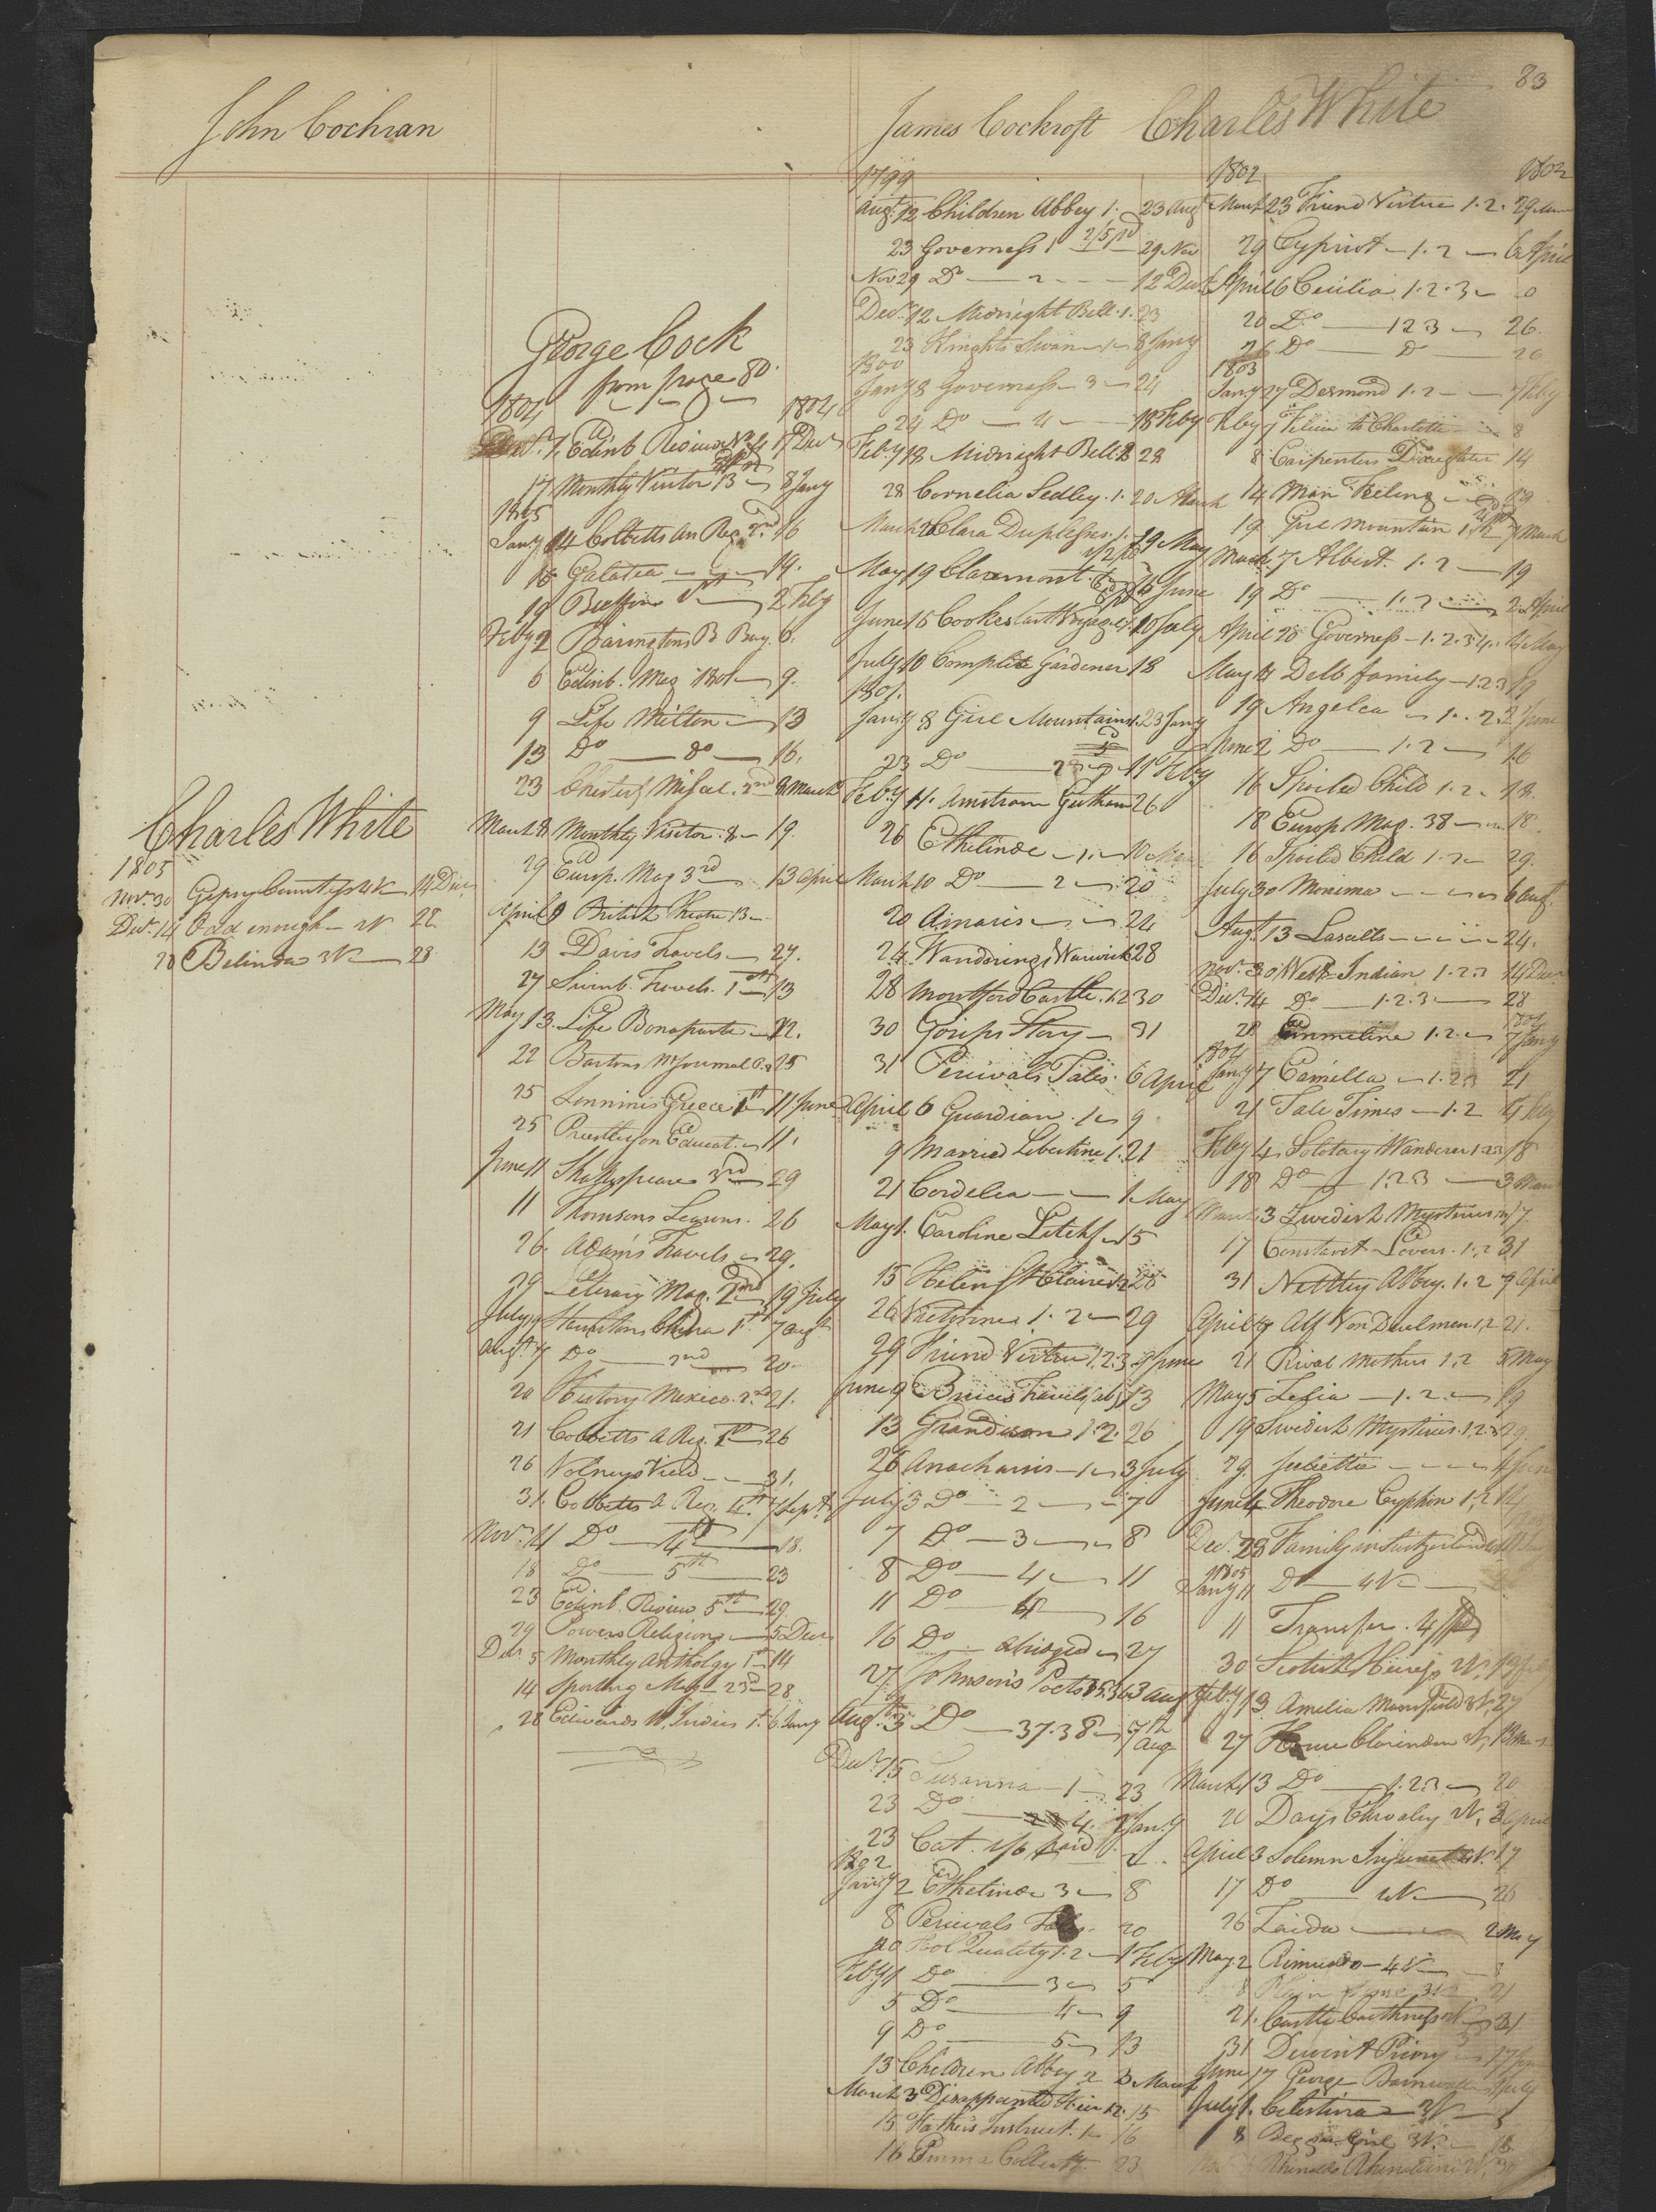 83
John Cochran
Charles White
1805
Novr. 30 Gipsy Countess 4 V 14 Decr
Decr. 14 Odd enough 28
28 Belinda 3 V 28
George Cock
from page 80
1804 1804
Decr. 7 Edinb Review 17 Decr
17 Monthly Visitor 13 8 Jany
1805
Jany 14 Cobbetts An Reg. 2nd 16
16 Galatea 19.
19 Buffon 2 Feby
Feby 2 Barringtons B Bay. 6.
6 Edinb. Mag 1801 9.
9 Life Milton 13
13 Do do 16.
23 Chesterf Miscel. 2nd 8 March
March 8 Monthly Visitor. 8 19.
29 Europ. Mag 3rd 13 April
April 9 British Theatre 13
13 Davis Travels 27.
27 Suinb. Travels. 1st 13
May 13. Life Bonaparte 22.
22 Bartons Journal 25
25 Greece 1st 11 June
25 Priestley on Educat. 11.
June 11 Shakspeare 3rd 29
11 Thomsons Seasons. 26
26. Adams Travels 29.
29 Literary Mag. 2nd 19 July
July 19 Stauntons China 1st 7 Augt
Augt. 7 Do 2nd 20.
20 History Mexico. 2nd 21.
21 Cobbetts A Reg. 26
26 Volneys View 31.
31. Cobbetts A Reg. 4th 7 Sept.
Novr. 11 Do 4th 18.
18 Do 5th 23
23 Edinb. Review 5th 29
29 Religion 5 Decr
Decr 5 Monthly Anthology 1st 14
14 Sporting Mag 23d 28
28 Edwards W. Indies 1st. 6 Jany
James Cockroft
1799
Augt. 12 Children Abbey 1. 23 Augt
23 Governess 1 29 Nov
Nov 29 Do 2 12 Decr
Decr. 12 Midnight Bell. 1. 23
23 Knights Swan 8 Jany
1800
Jany 8 Governess 3 24
24 Do 4 18 Feby
Feby 18 Midnight Bell 2 28
28 Cornelia Sedley. 1. 20 March
March 20 Clara Duplessis. 1. 19 May
May 19 Claremont. 16 June
June 16 Cookes last Voyage 10 July
July 10 Complete Gardener 18
1801.
Jany 8 Girl Mountains 1. 23 Jany
23 Do 11 Feby
Feby 11. 26
26 Ethelinde 1. 10 Mar
March 10 Do 2 20
20 Amaris 24
24. Wanderings Warwick 28
28 Montford Castle. 1.2 30
30 Gosips Story 31
31 Percivals Tales. 6 April
April 6 Guardian. 1 9
9 Married Libertine 1. 21
21 Cordelia 1. May
May 1. Caroline Litchf 15
15 Helen St Claire 1.2 26
26 Victorine 1. 2 29
29 Friend Virtue 1.2.3 9 June
June 9 Bruces Travels (ab) 13
13 Grandison 1. 2. 26
26 Anacharsis 1 3 July
July 3 Do 2 7
7 Do 3 8
8 Do 4 11
11 Do 16
16 Do abridged 27
27 Johnson's Poets 35.36 3 Aug
Augt. 3 Do 37.38 7th Aug
Decr. 15 Susanna 1 23
23 Do 4. 2 Jany
23 Cat. 1/6 paid 2
1802
Jany 2 Ethelinde 3 8
8 Percivals Tales 20
20 Quality 1. 2 1 Feby
Feby 1 Do 3 5
5 Do 4 9
9 Do 5 13
13 Children Abbey 2 3 March
March 3 Disappointed Heir 1.2. 15
15 Fathers Instruct. 1 16
16 Emma 23
Charles White
1802 1802
March 23 Friend Virtue 1. 2. 29 Mar
29 Cypriot 1. 2 6 April
April 6 Cecilia 1. 2. 3
20 Do 1 2 3 26.
26 Do Do 26
1803
Jany 27 Desmond 1. 2 7 Feby
Feby 7 Felicia to Charlotte 8
8 Carpenters Daughter 14
14 Man Feeling 19
19 Girl Mountain 7 March
March 7 Albert. 1. 2 19
19 Do 1. 2 2 April
April 20 Governess 1. 2. 3 4. 14 May
May 14 Dells family 1 2 3 19
19 Angelea 1. 2. 2 June
June 2 Do 1. 2 16
16 Spoiled Child 1. 2 18.
18 Europ Mag. 38 18.
16 Spoiled Child 1. 2 29.
July 30 Monima 6 Aug.
Aug. 13 Lasalls 24.
Novr. 30 West Indian 1. 2.3 14 Decr
Decr. 14 Do 1. 2. 3 28
28 Emmeline 1. 2. 7 Jany
1804
Jany 7 Camilla 1. 2 3 21
21 Tale Times 1. 2 4 Feby
Feby 4 Solotary Wanderer 1 2 3 18
18 Do 1 2 3 3 Mar
March 3 Swedish Mysteries 17.
17 Constant Lovers. 1. 2 31
31 Nettley Abbey. 1. 2 9 April
April 9 Alf Von Duelmen 1.2 21.
21 Rival Mothers 1. 2 5 May
May 5 Zelia 1. 2. 19
19 Swedish Mysteries. 1, 2. 3 29.
29. Juliette 4 June
June 4 Theodore Cyphon 1, 2 14
Decr. 28 Family in Switzerland 11 Jany
1805
Jany 11 Do 4 V
11 Transfer. 4
30 Scotish Heiress 13 Feb
Feby 13. Amelia Mansfield 27
27 Clarendon 13 Mar
March 13 Do 1. 2 3 20
20 Days Chivalry 3 April
April 3 Solemn Injunct 4 V. 17
17 Do 4 V 26
26 Zaida 2 May
May 2 Rimualdo 4 V 8
8 Plain Sense 3 V 21
21. Castle Caithness 31
31 Derwint Priory 17 Jun
June 17 George Barnwell 1 July
July 1. Celestina 3 V
8 Beggar Girl 3 V. 18